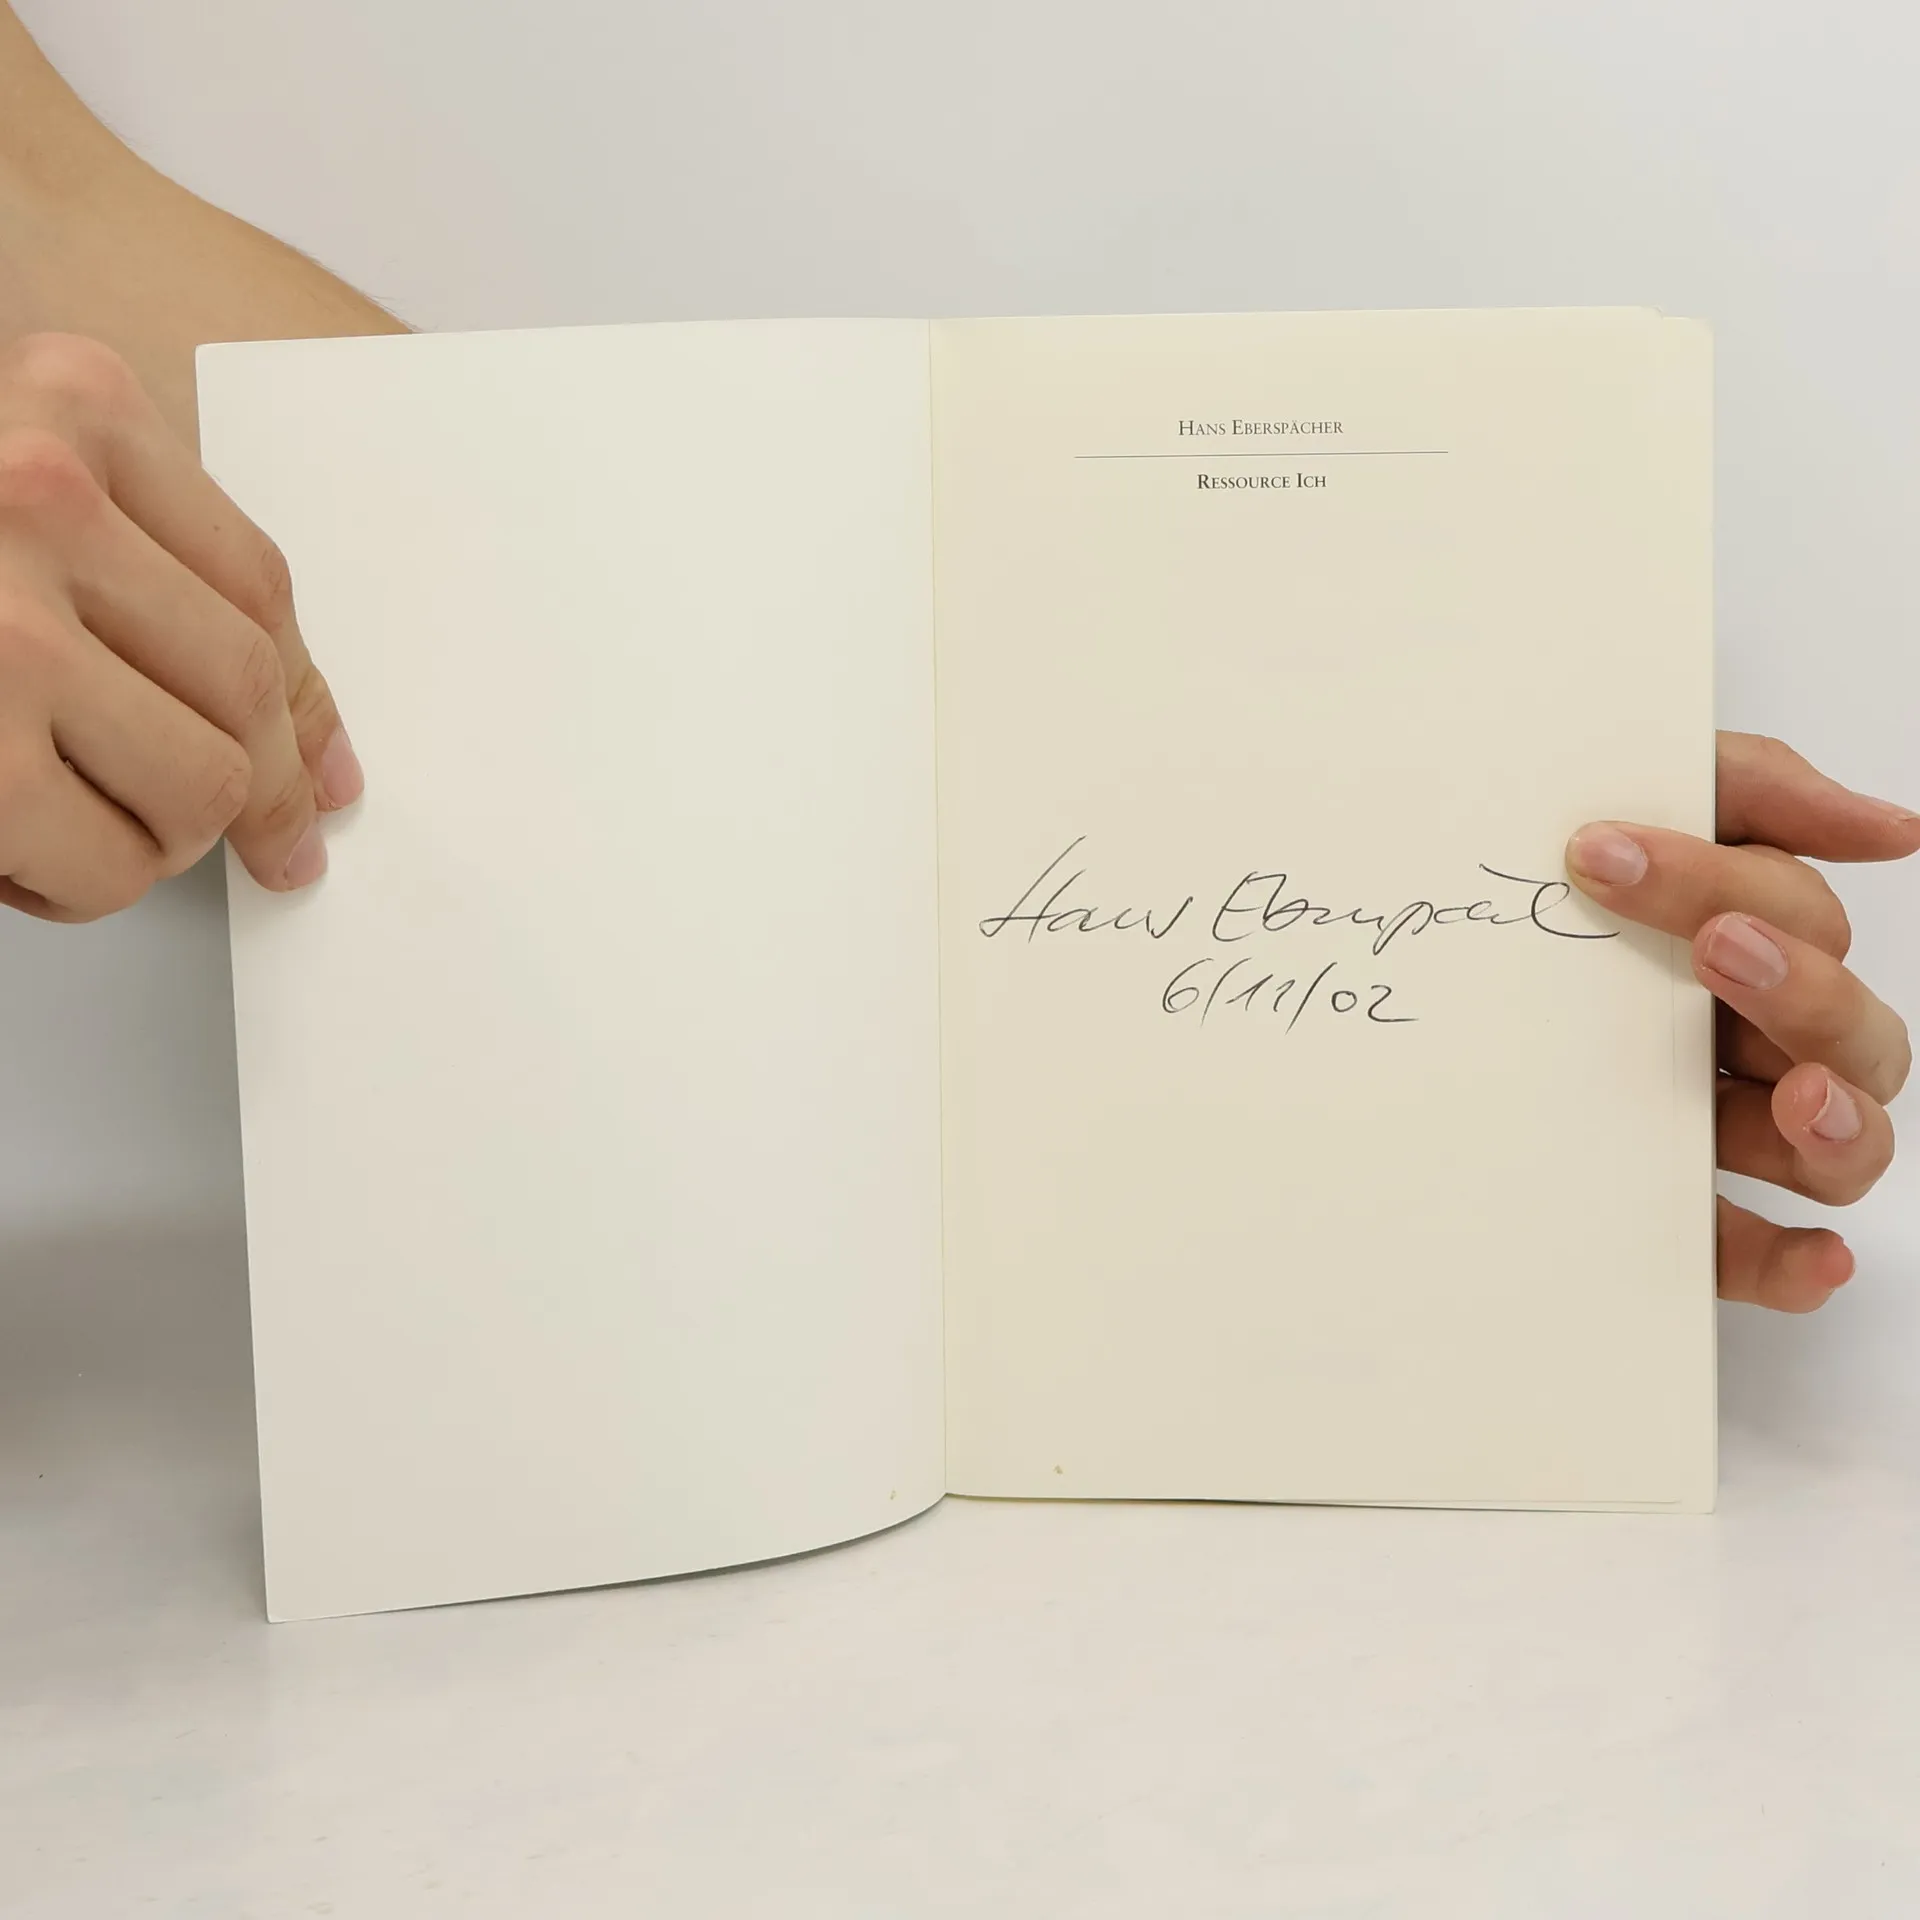 HANS EBERSPÄCHER
RESSOURCE ICH
Hans Eberspächer
6/11/02